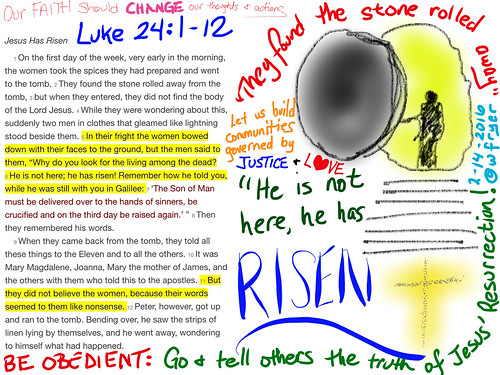 Our FAITH should CHANGE our thoughts & actions
Luke 24:1-12
Jesus Has Risen
1 On the first day of the week, very early in the morning,
the women took the spices they had prepared and went
to the tomb. 2 They found the stone rolled away from the
tomb, 3 but when they entered, they did not find the body
of the Lord Jesus. 4 While they were wondering about this,
suddenly two men in clothes that gleamed like lightning
stood beside them. 5 In their fright the women bowed
down with their faces to the ground, but the men said to
them, “Why do you look for the living among the dead?
6 He is not here; he has risen! Remember how he told you,
while he was still with you in Galilee: 7 ‘The Son of Man
must be delivered over to the hands of sinners, be
crucified and on the third day be raised again.’ ” 8 Then
they remembered his words.
9 When they came back from the tomb, they told all
these things to the Eleven and to all the others. 10 It was
Mary Magdalene, Joanna, Mary the mother of James, and
the others with them who told this to the apostles. 11 But
they did not believe the women, because their words
seemed to them like nonsense. 12 Peter, however, got up
and ran to the tomb. Bending over, he saw the strips of
linen lying by themselves, and he went away, wondering
to himself what had happened.
"They found the stone rolled away"
Let us build
communities
governed by
JUSTICE & LOVE
"He is not
here, he has
RISEN
BE OBEDIENT: Go & tell others the truth of Jesus' Resurrection!
2-14-2016